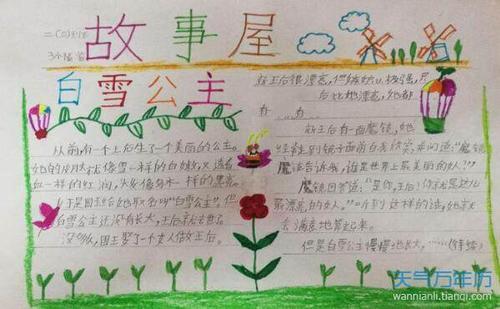 故事屋
白雪公主
从前,有一个王后生了一个美丽的公主。
她的皮肤就像雪一样的白嫩,又透着
血一样的红润,头发像乌木一样的黑亮。
于是国王给她取名叫"白雪公主",但
白雪公主还没有长大,王后就去世了。
没多久,国王娶了一个女人做王后。
新王后很漂亮,但
后比她漂亮,她都
新王后有一面魔镜,她
经常到镜子面前自我欣赏,并问道:"
魔
告诉我,谁是世界上最美丽的女人?"
魔镜回答道:"是你,王后!你就是这儿
最漂亮的女人。"听到这样的话,她
满意地笑起来。
但是白雪公主慢慢地长大,……(待续)
天气万年历
wannianli.tianqi.com